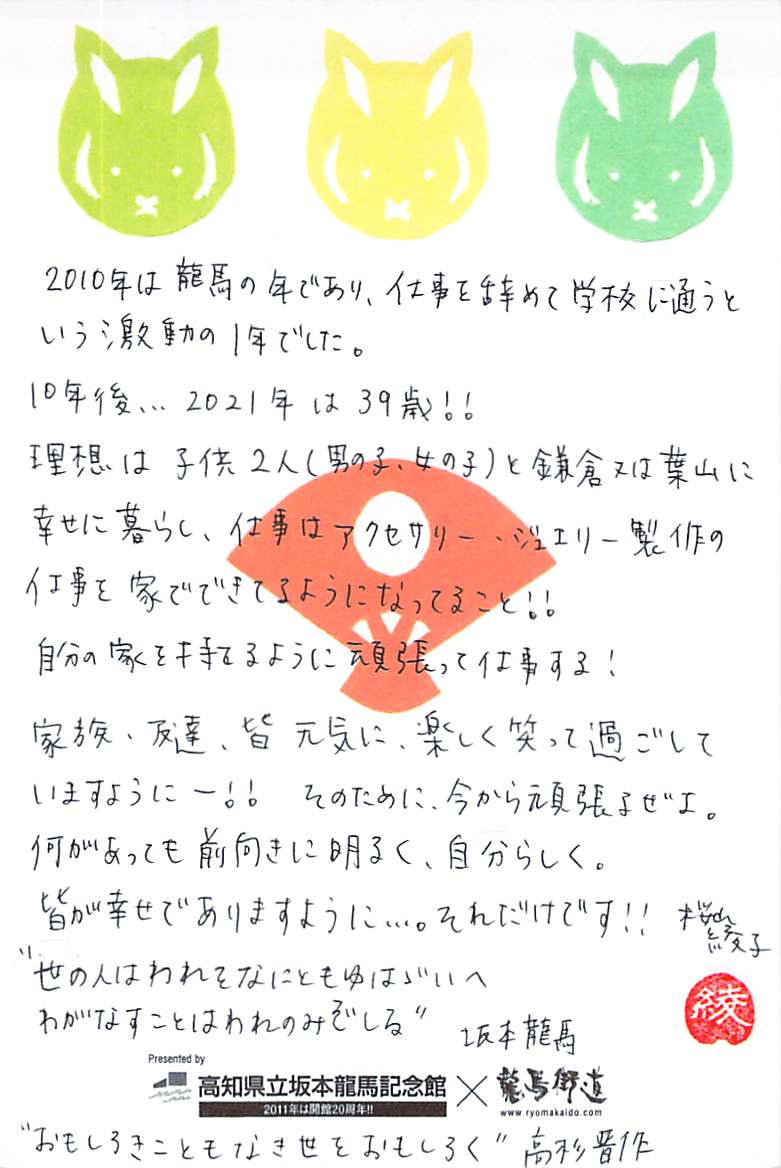 2010年は龍馬の年であり、仕事を辞めて学校に通うと
いう激動の1年でした。
10年後... 2021年は39歳!!
理想は子供2人(男の子、女の子)と鎌倉又は葉山に
幸せに暮らし、仕事はアクセサリー・ジュエリー製作の
仕事を家でできてるようになってること!!
自分の家を持てるように頑張って仕事する!
家族、友達、皆元気に、楽しく笑って過ごして
いますようにー!! そのために、今から頑張るぜよ。
何があっても前向きに明るく、自分らしく。
皆が幸せでありますように...。それだけです!!
綾子
綾
"世の人はわれをなにともゆはゞいへ
わがなすことはわれのみぞしる"
坂本龍馬
Presented by
高知県立坂本龍馬記念館
2011年は開館20周年!!
×
龍馬街道
www.ryomakaido.com
"おもしろきこともなき世をおもしろく" 高杉晋作